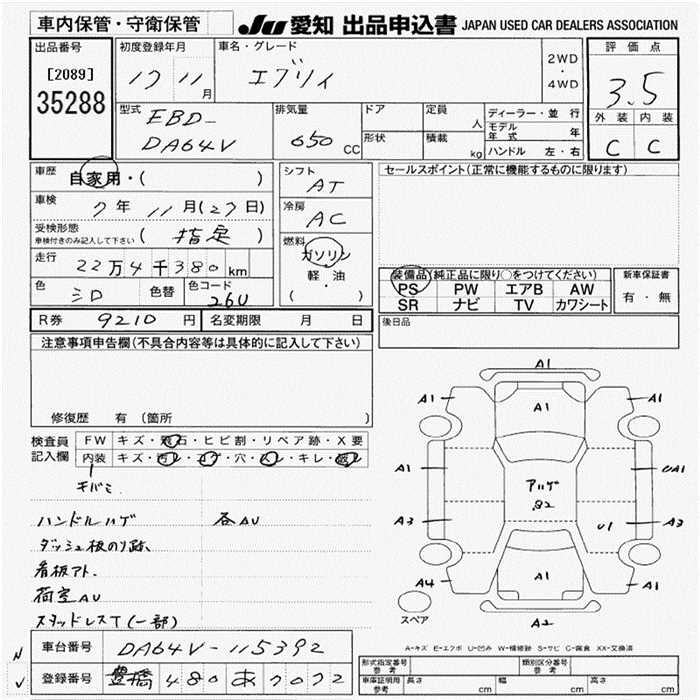 車内保管・守衛保管
JU 愛知 出品申込書 JAPAN USED CAR DEALERS ASSOCIATION
出品番号
[2089]
35288
初度登録年月
17 11月
車名・グレード
エブリィ
2WD
・
4WD
評価点
3.5
外装 内装
C C
型式
EBD-
DA64V
排気量
650 CC
ドア
形状
定員 人
積載 kg
ディーラー・並行
モデル年式 年
ハンドル 左・右
車歴 自家用・( )
車検 7年 11月(27日)
受検形態
車検付きのみ記入して下さい ( 指定 )
走行 22万4千380km
色 シロ 色替 色コード 26U
シフト
AT
冷房
AC
燃料
ガソリン
軽・油
( )
セールスポイント(正常に機能するものに限ります)
装備品(純正品に限り○をつけてください)
PS PW エアB AW
SR ナビ TV カワシート
新車保証書
有・無
R券 9210 円 名変期限 月 日
後日品
注意事項申告欄(不具合内容等は具体的に記入して下さい)
修復歴 有 (箇所 )
検査員
記入欄
FW キズ・飛石・ヒビ割・リペア跡・X要
内装 キズ・汚レ・コゲ・穴・ハレ・キレ・破レ
キバミ
ハンドルハゲ 各AU
ダッシュ板のリ跡、
看板アト、
荷室AU
スタッドレスT(一部)
A1
A1 A1 A1
A1 アハゲ UA1
82
A3 U1 A3
A4 A1 A1
スペア A2
A-キズ E-エクボ U-凹み W-補修跡 S-サビ C-腐食 XX-交換済
車台番号 DA64V-115392
登録番号 豊橋 480 あ 7072
N
V
形式指定番号
参考
類別区分番号
参考
車庫証明用
参考
長さ cm 幅 cm 高さ cm